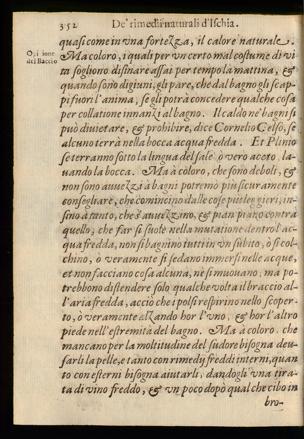 352 De' rimedij naturali d'Ischia.
quasi come in vna fortezza, il calore naturale.
Ma coloro, i quali per vn certo mal costume di vi
ta sogliono disinare assai per tempo la mattina, &
quando sono digiuni, gli pare, che dal bagno gli scap
pi fuori l'anima, se gli potrà concedere qualche cosa
per collatione innanzi al bagno. Il caldo ne' bagni si
può diuietare, & prohibire, dice Cornelio Celso, se
alcuno terrà nella bocca acqua fredda. Et Plinio
se terranno sotto la lingua del sale ò vero aceto, la-
uando la bocca. Ma à coloro, che sono deboli, &
non sono auuezzi à bagni potremo più sicuramente
consegliare, che comincino dalle cose più leggieri, in-
sino à tanto, che s'auuezzino, & pian piano contra
quello, che far si suole nella mutatione dentro l'ac-
qua fredda, non si bagnino tutti in vn subito, ò si col-
chino, ò veramente si sedano immersi nelle acque,
et non facciano cosa alcuna, nè si muouano, ma po-
trebbono distendere solo qualche volta il braccio al-
l'aria fredda, acciò che i polsi respirino nello scoper-
to, ò veramente alzando hor l'vno, & hor l'altro
piede nell'estremità del bagno. Ma à coloro che
mancano per la moltitudine del sudore bisogna deu-
sarli la pelle, e tanto con rimedij freddi interni, quan
to con esterni bisogna aiutarli, dandogli vna tira-
ta di vino freddo, & vn poco dopò qual che cibo in
bro-